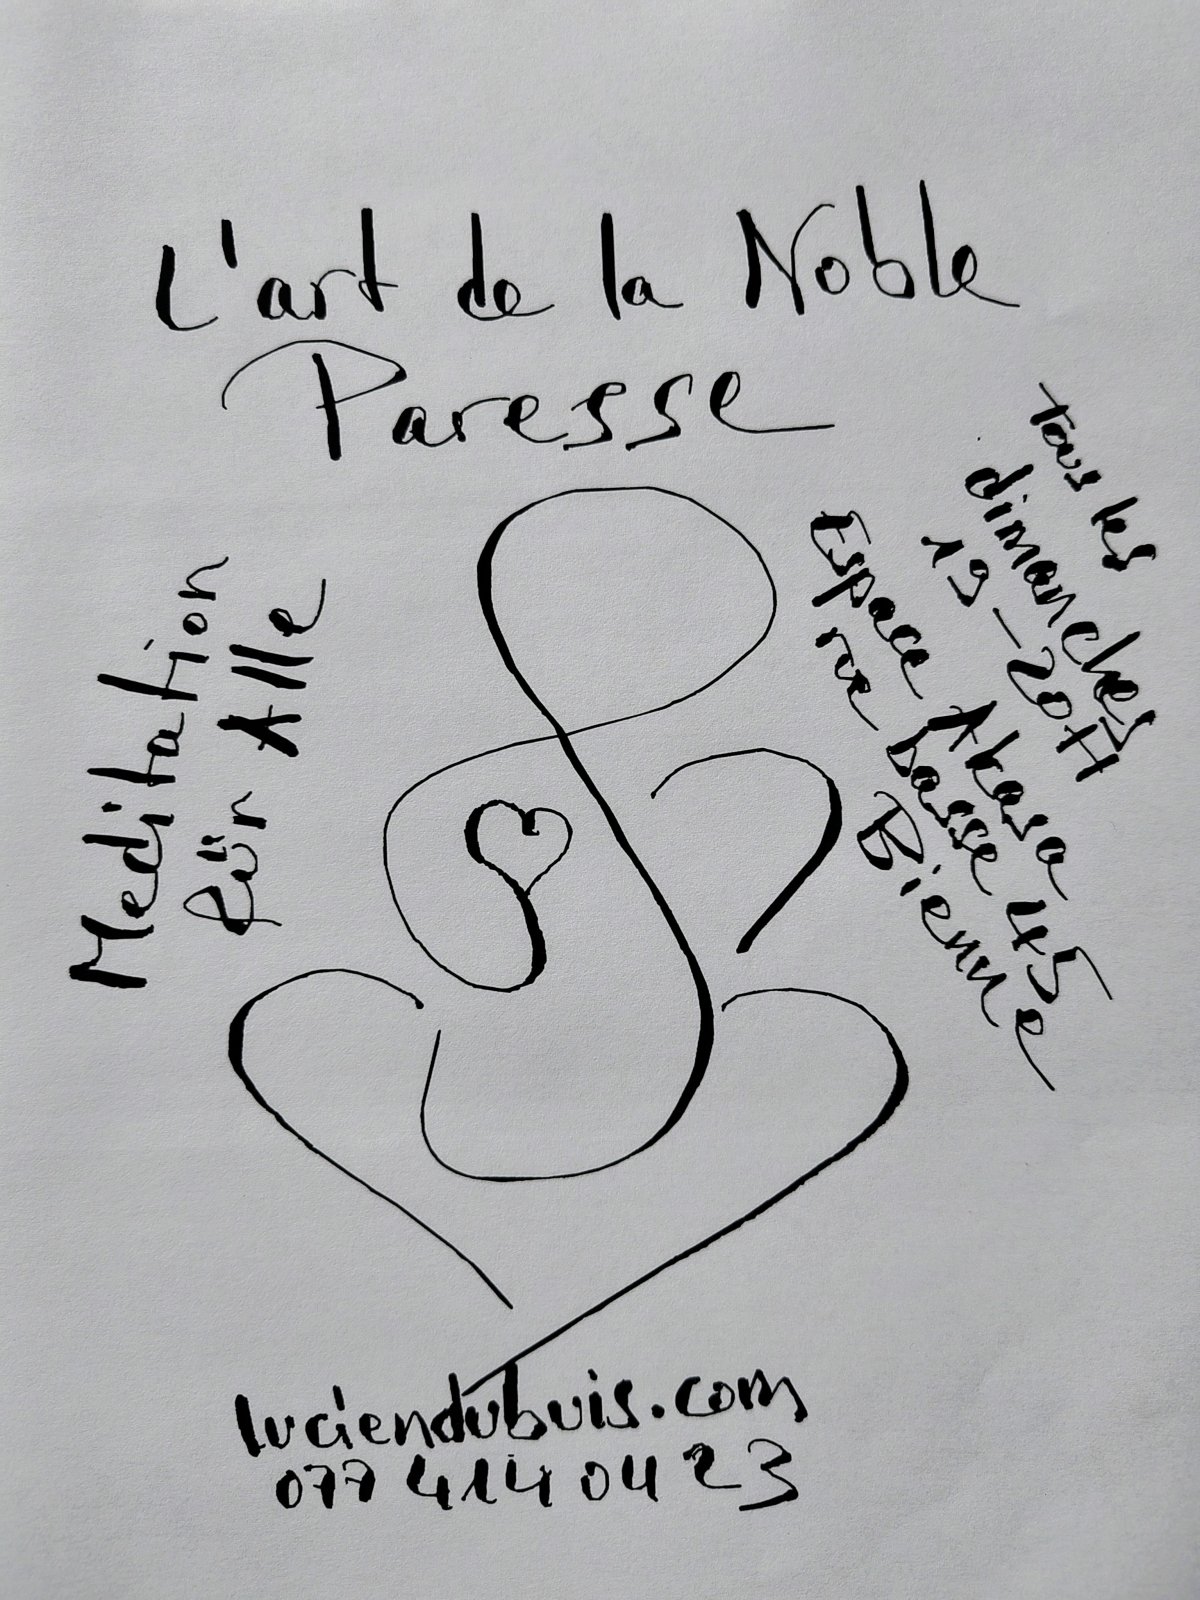 L'art de la Noble
Paresse
Meditation
für Alle
tous les
dimanches
19-20H
Espace Akasa
rue basse 45
Bienne
luciendubuis.com
077 414 04 23